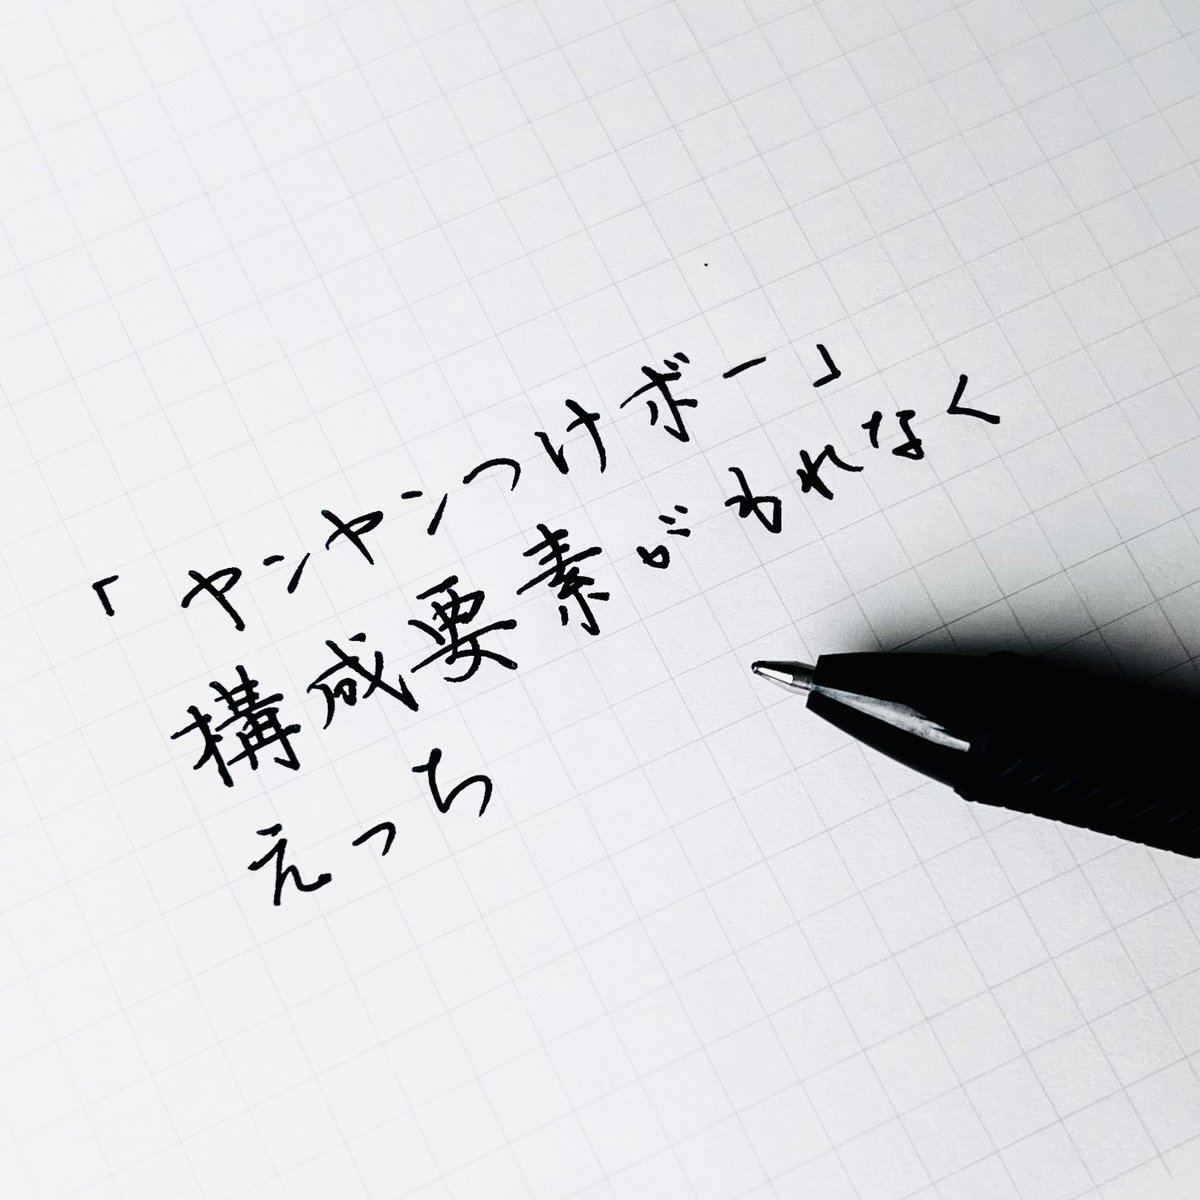 「ヤンヤンつけボー」
構成要素がもれなく
えっち